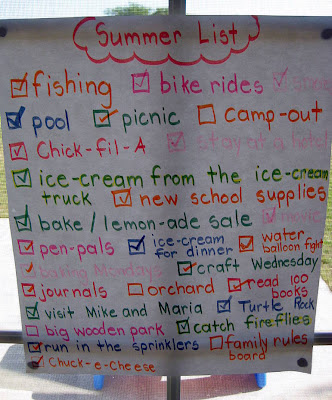 Summer List
fishing bike rides
pool picnic camp-out
Chick-fil-A stay at a hotel
ice-cream from the ice-cream
truck new school supplies
bake / lemon-ade sale movie
pen-pals ice-cream for dinner water balloon fight
baking Mondays craft Wednesday
journals orchard read 100 books
visit Mike and Maria Turtle Rock
big wooden park catch fireflies
run in the sprinklers family rules board
Chuck-e-Cheese